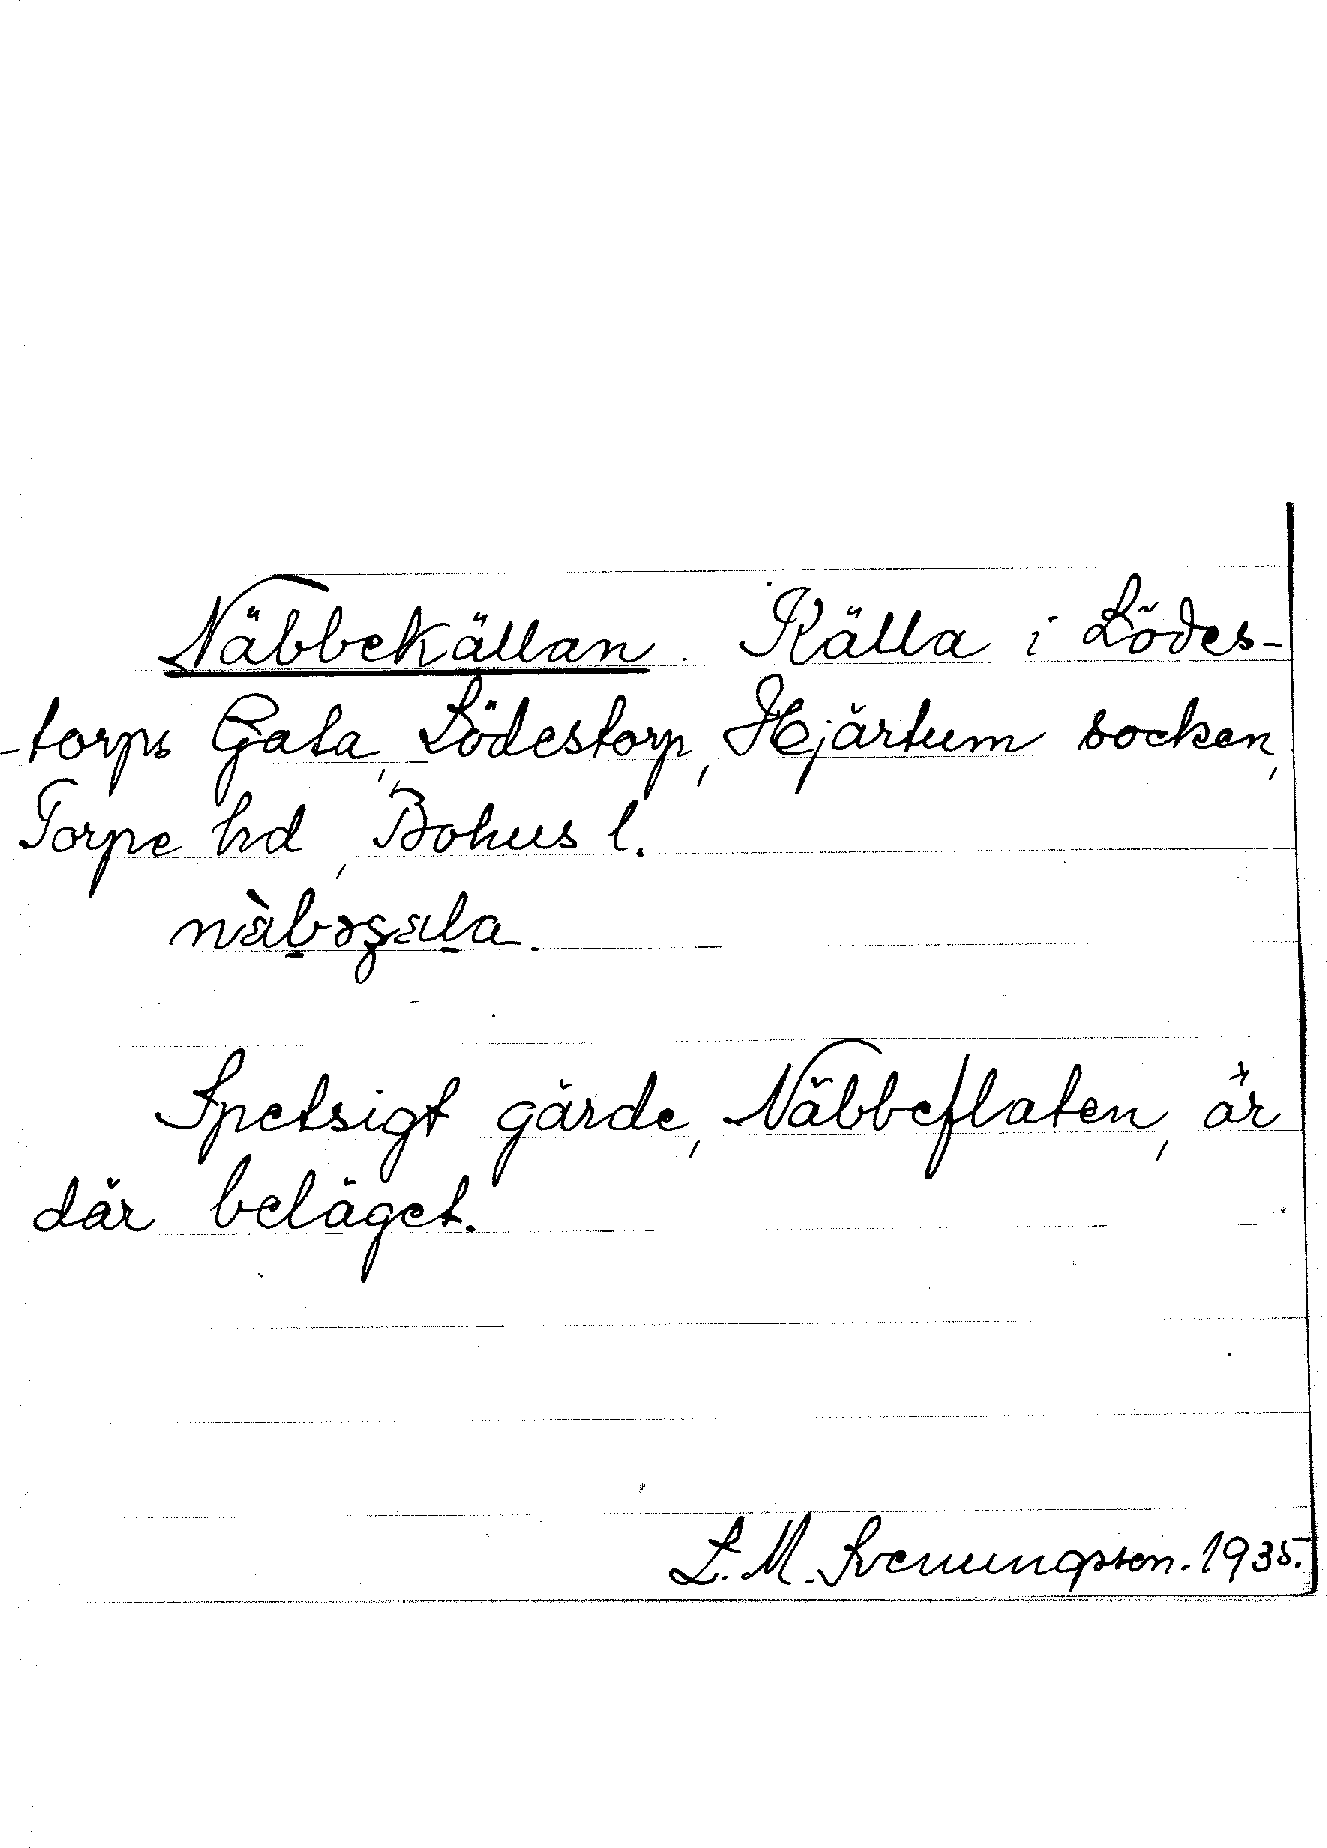 Näbbekällan. Källa i Lödes-
-torps Gata, Lödestorp, Hjärtum socken,
Torpe hd, Bohus l.
Spetsigt gärde, Näbbeflaten, är
där beläget.
L. M. Svenungsson. 1935.